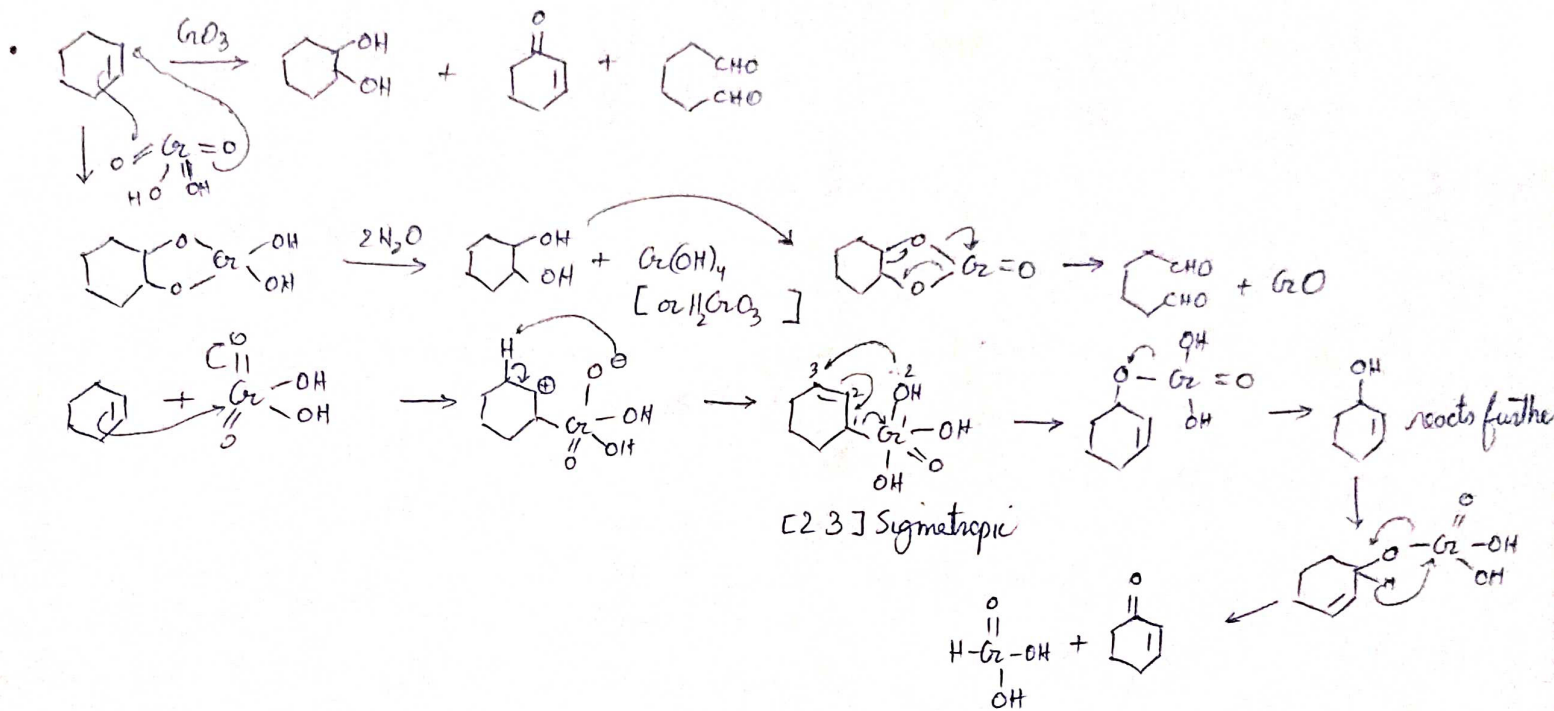 CrO3
OH
OH
+
O
+
CHO
CHO
O = Cr = O
HO OH
O
O
Cr
OH
OH
2H2O
OH
OH
+ Cr(OH)4
[or H2CrO3]
O
O
Cr = O
CHO
CHO
+ CrO
+
O
Cr
OH
OH
O
H
⊕
O⊖
Cr
OH
OH
O
3
2
1
2
OH
1
Cr
OH
O
OH
[2 3] Sigmetropic
O - Cr = O
OH
OH
OH
reacts furthe
O - Cr - OH
O
OH
H
O
H-Cr-OH +
OH
O